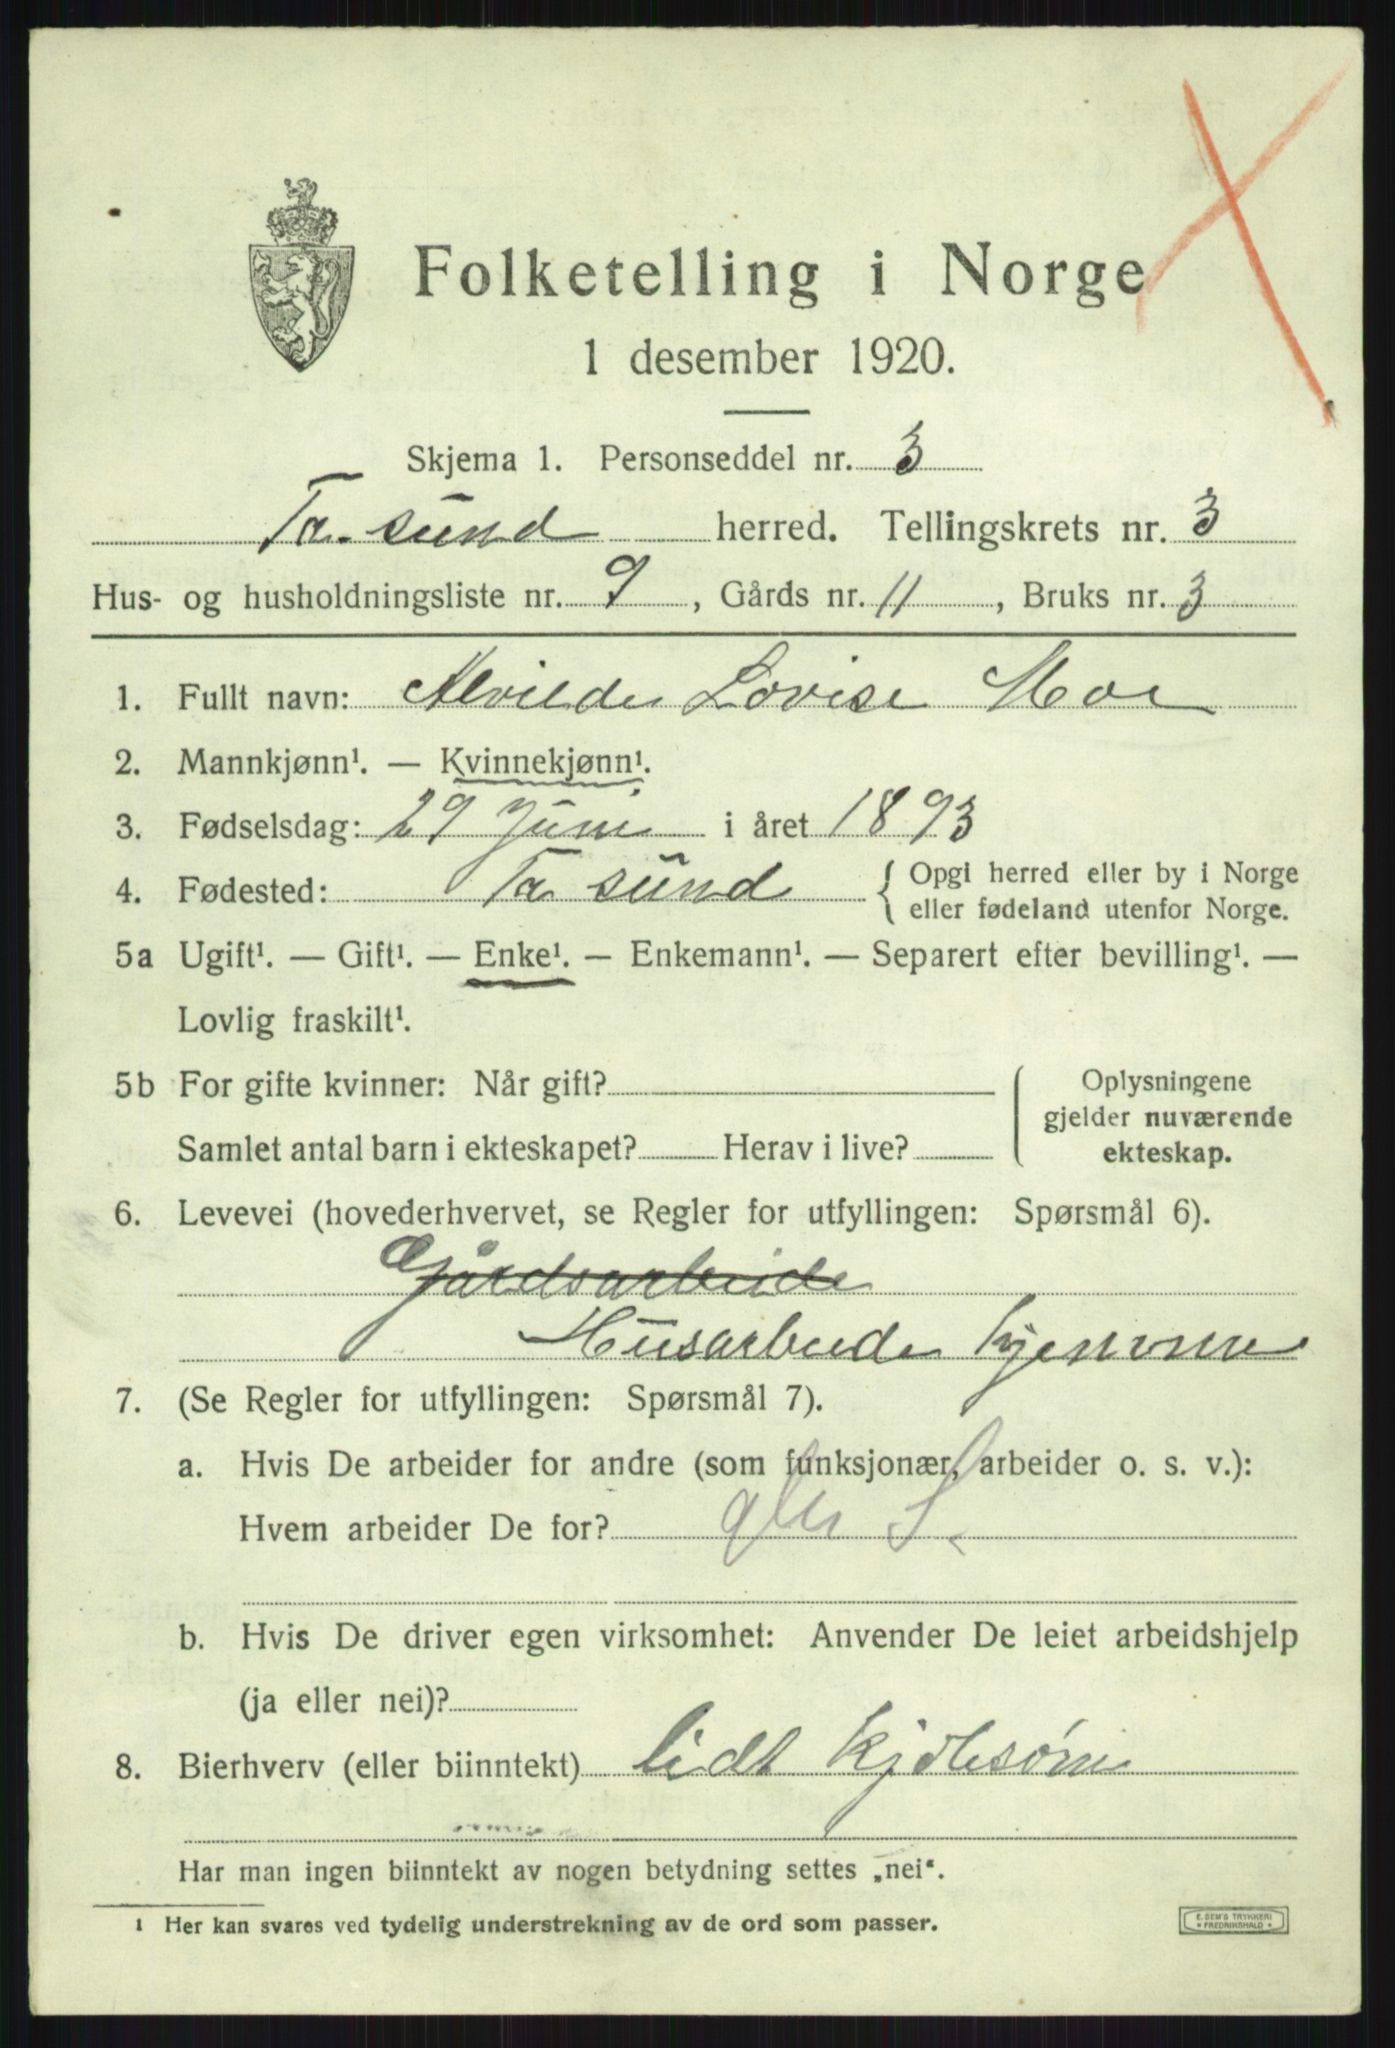 Folketelling i Norge
1 desember 1920.
Skjema 1. Personseddel nr. 3
herred. Tellingskrets nr. 3
Hus- og husholdningsliste nr. 9, Gårds nr. 11, Bruks nr. 3
1. Fullt navn: Alvilde Lovise Moe
2. Mannkjønn¹. — Kvinnekjønn¹.
3. Fødselsdag: 29 Juni i året 1893
4. Fødested: { Opgi herred eller by i Norge
eller fødeland utenfor Norge.
5a Ugift¹. — Gift¹. — Enke¹. — Enkemann¹. — Separert efter bevilling¹. —
Lovlig fraskilt¹.
5b For gifte kvinner: Når gift?
Samlet antal barn i ekteskapet? Herav i live?
Oplysningene
gjelder nuværende
ekteskap.
6. Levevei (hovederhvervet, se Regler for utfyllingen: Spørsmål 6).
Gårdsarbeide
Husarbeide hjemme
7. (Se Regler for utfyllingen: Spørsmål 7).
a. Hvis De arbeider for andre (som funksjonær, arbeider o. s. v.):
Hvem arbeider De for?
b. Hvis De driver egen virksomhet: Anvender De leiet arbeidshjelp
(ja eller nei)?
8. Bierhverv (eller biinntekt) lidt kjolesøm
Har man ingen biinntekt av nogen betydning settes „nei“.
1 Her kan svares ved tydelig understrekning av de ord som passer.
E. SEM'S TRYKKERI
* FREDRIKSHALD *